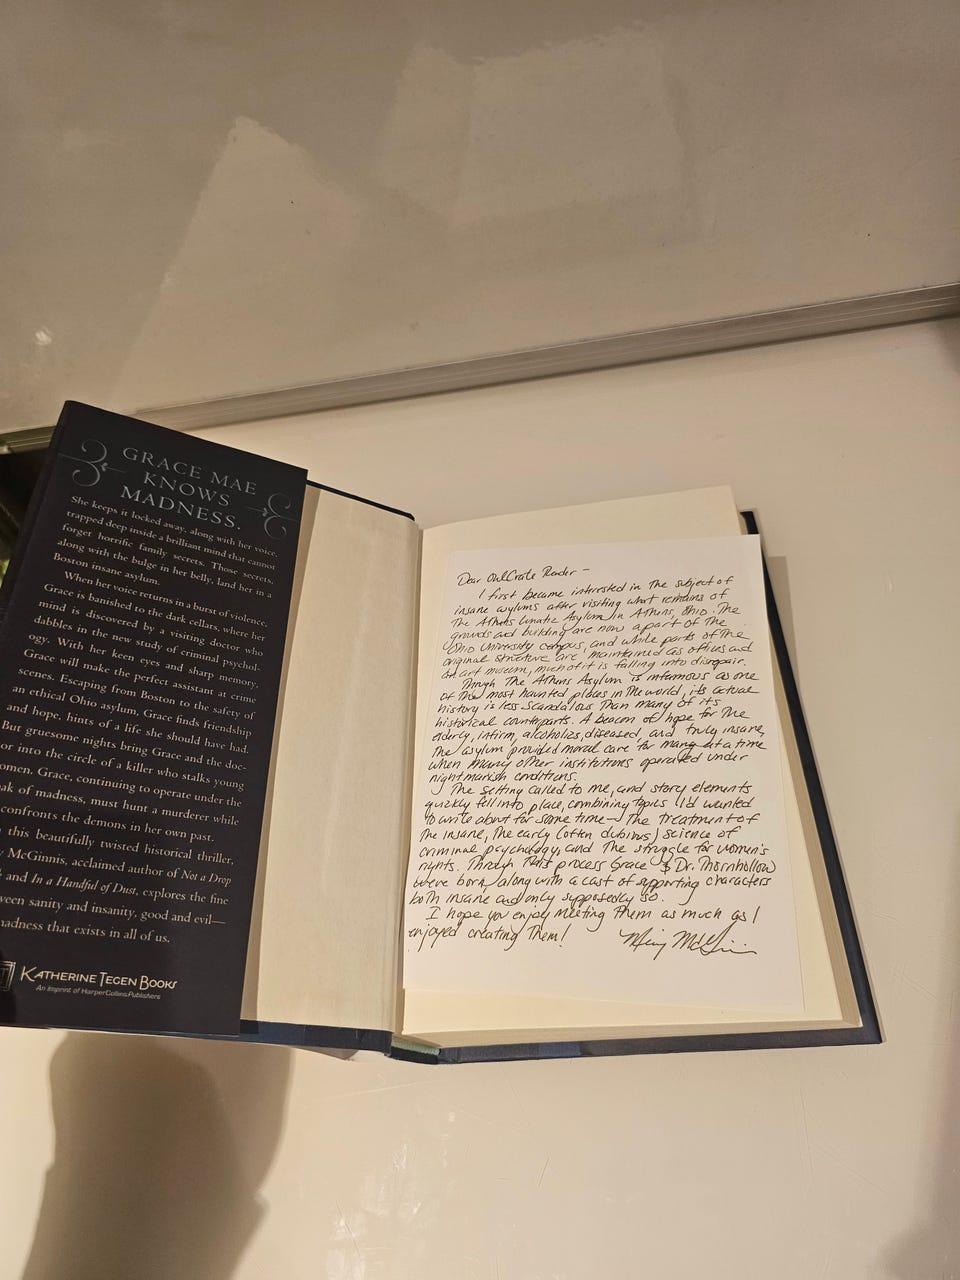 GRACE MAE
KNOWS
MADNESS.
She keeps it locked away, along with her voice,
trapped deep inside a brilliant mind that cannot
forget horrific family secrets. Those secrets,
along with the bulge in her belly, land her in a
Boston insane asylum.
When her voice returns in a burst of violence,
Grace is banished to the dark cellars, where her
mind is discovered by a visiting doctor who
dabbles in the new study of criminal psychol-
ogy. With her keen eyes and sharp memory,
Grace will make the perfect assistant at crime
scenes. Escaping from Boston to the safety of
an ethical Ohio asylum, Grace finds friendship
and hope, hints of a life she should have had.
But gruesome nights bring Grace and the doc-
or into the circle of a killer who stalks young
omen. Grace, continuing to operate under the
ak of madness, must hunt a murderer while
confronts the demons in her own past.
this beautifully twisted historical thriller,
y McGinnis, acclaimed author of Not a Drop
and In a Handful of Dust, explores the fine
ween sanity and insanity, good and evil—
madness that exists in all of us.
KATHERINE TEGEN BOOKS
An Imprint of HarperCollinsPublishers
Dear OwlCrate Reader -
I first became interested in the subject of
insane asylums after visiting what remains of
The Athens Lunatic Asylum in Athens, Ohio. The
grounds and building are now a part of the
Ohio University campus, and while parts of the
original structure are maintained as offices and
an art museum, much of it is falling into disrepair.
Though The Athens Asylum is infamous as one
of the most haunted places in the world, its actual
history is less scandalous than many of its
historical counterparts. A beacon of hope for the
elderly, infirm, alcoholics, diseased, and truly insane,
the asylum provided moral care for many at a time
when many other institutions operated under
nightmarish conditions.
The setting called to me, and story elements
quickly fell into place, combining topics I'd wanted
to write about for some time - The treatment of
the insane, the early (often dubious) science of
criminal psychology, and the struggle for women's
rights. Through this process Grace & Dr. Thornhollow
were born, along with a cast of supporting characters
both insane and only supposedly so.
I hope you enjoy meeting them as much as I
enjoyed creating them!
Mindy McGinnis